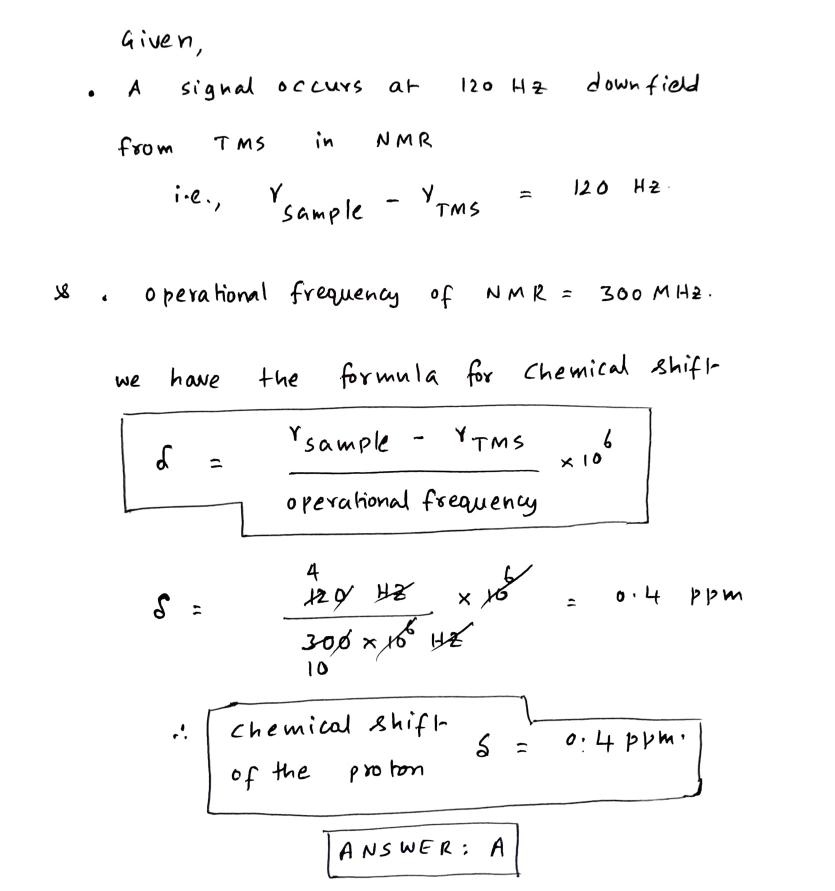 Given,
• A signal occurs at 120 Hz downfield
from TMS in NMR
i.e., γsample - γTMS = 120 Hz.
& • operational frequency of NMR = 300 MHz.
we have the formula for chemical shift
δ = γsample - γTMS / operational frequency × 10^6
δ = 4 120 Hz / 300 × 10^6 Hz 10 × 10^6 = 0.4 ppm
∴ chemical shift of the proton δ = 0.4 ppm.
ANSWER: A